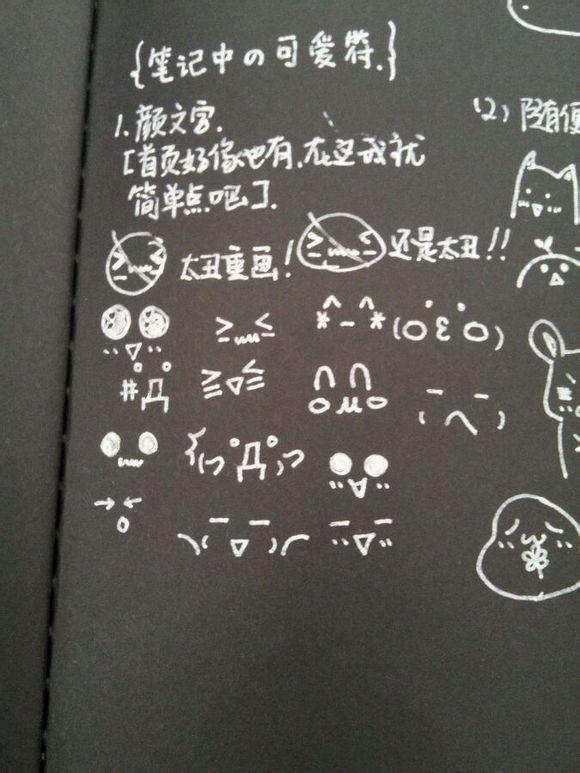 {笔记中の可爱符.}
1.颜文字.
[首页好像也有.在这我就
简单点吧].
太丑重画!
还是太丑!!
(2) 随便